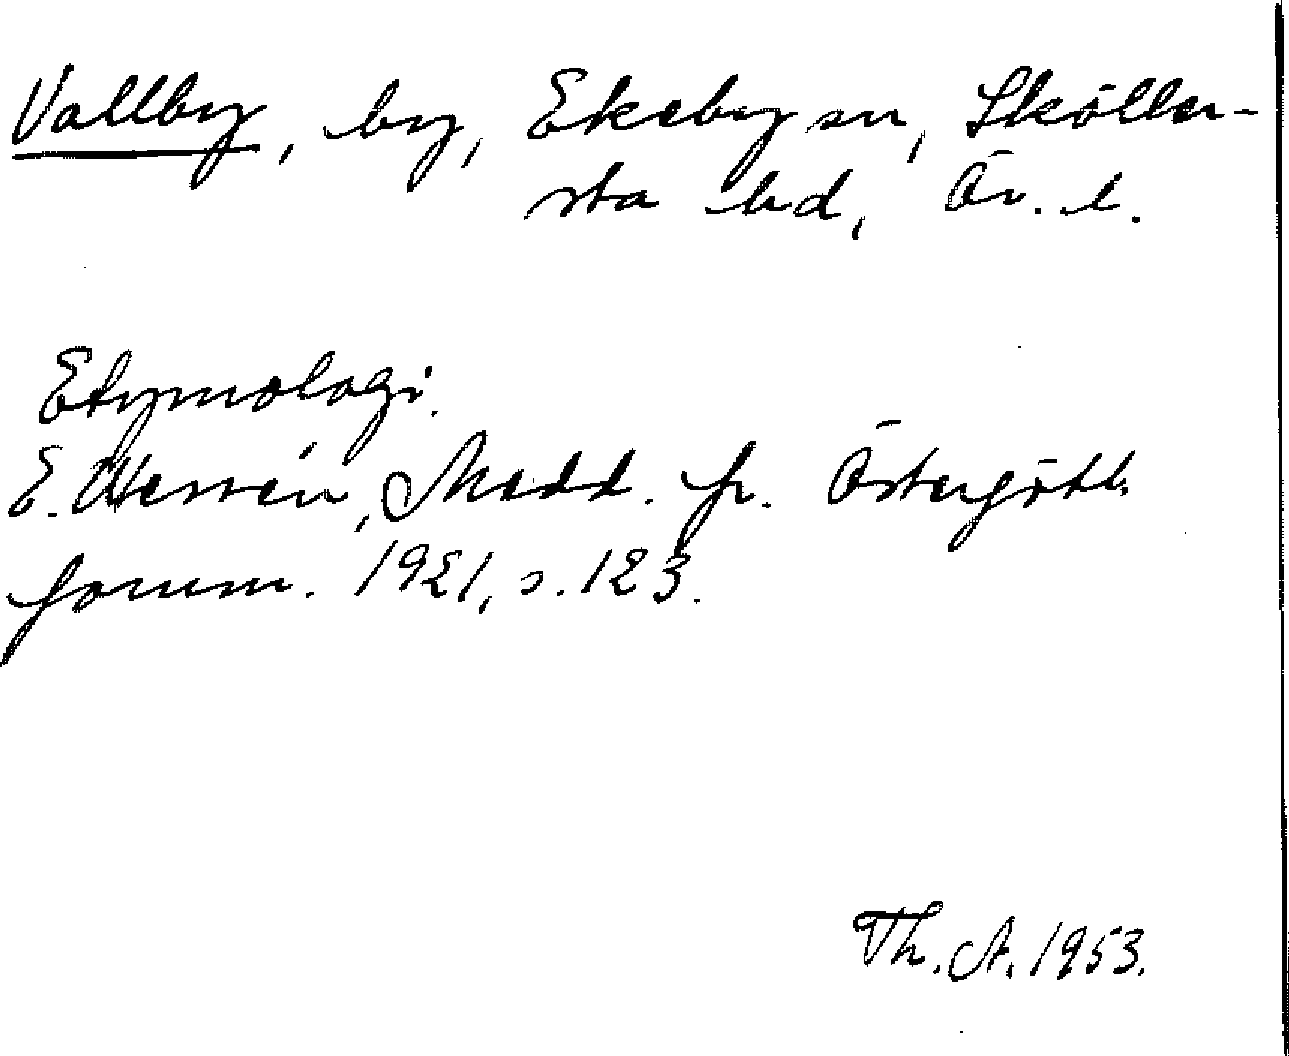 Vallby, by, Ekeby sn, Sköller-
sta hd, Ör. l.
Etymologi.
E. Wessén, Medd. fr. Östergötl.
fornm. 1921, s. 123.
Th. A. 1953.